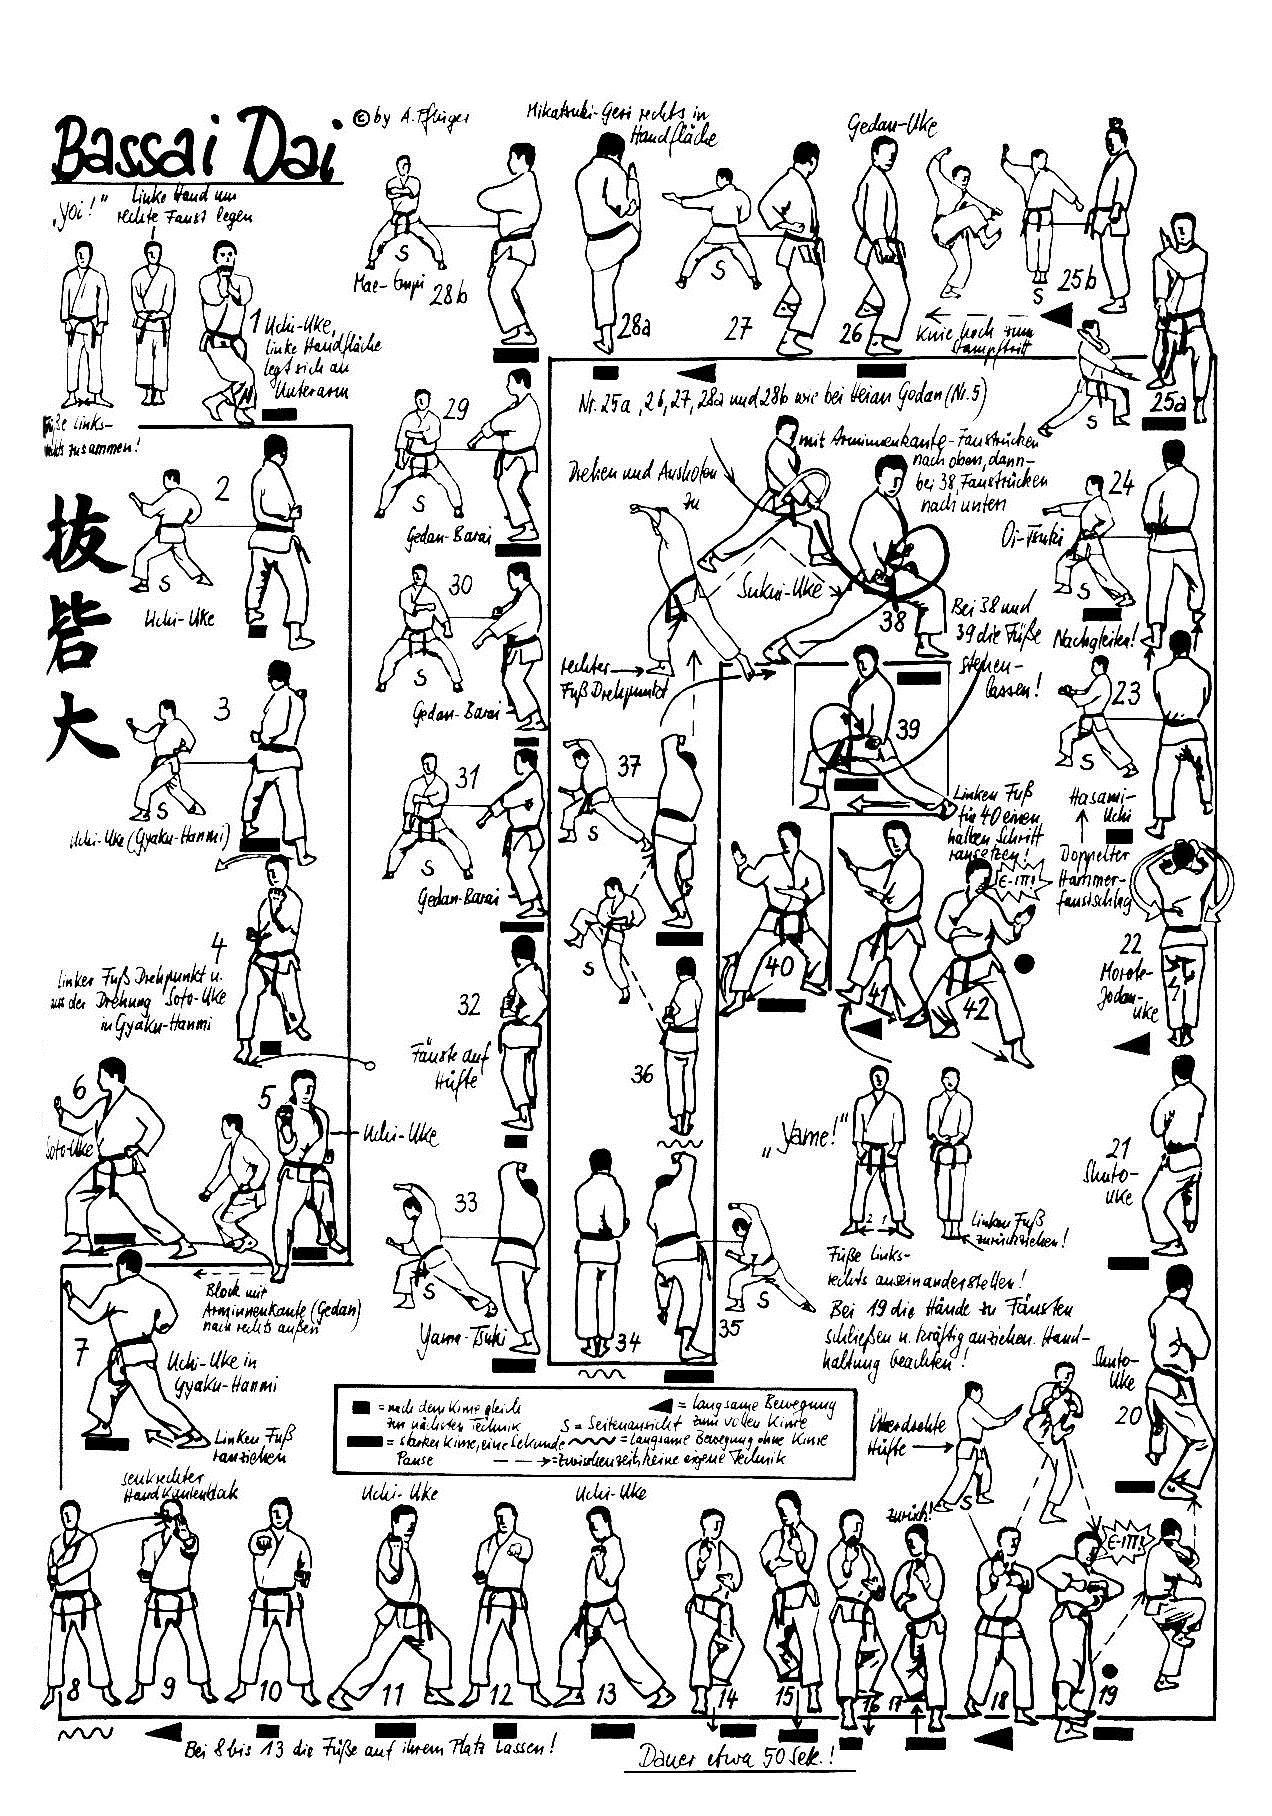 Bassai Dai
© by A. Pflüger
"Yoi!"
Linke Hand um
rechte Faust legen
1 Uchi-Uke,
linke Handfläche
legt sich an
Unterarm
Füße links-
rechts zusammen!
抜
砦
大
2
S
Uchi-Uke
3
S
Uchi-Uke (Gyaku-Hanmi)
4
Linker Fuß Drehpunkt u.
aus der Drehung Soto-Uke
in Gyaku-Hanmi
5
Uchi-Uke
6
Soto-Uke
Block mit
Arminnenkante (Gedan)
nach rechts außen
7
Uchi-Uke in
Gyaku-Hanmi
Linken Fuß
ranziehen
senkrechter
Handkantenblock
8
9
10
Uchi-Uke
11
12
Uchi-Uke
13
14
15
16
zurück!
17
18
E-ITT!
19
Bei 8 bis 13 die Füße auf ihrem Platz lassen!
Dauer etwa 50 Sek.!
Überdrehte
Hüfte
S
Shuto-
Uke
20
21
Shuto-
Uke
22
Morote-
Jodan-
Uke
Doppelter
Hammer-
faustschlag
Hasami-
Uchi
23
S
Nachgleiten!
24
Oi-Tsuki
S
25a
S
25b
S
Knie hoch zum
Stampftritt
Gedan-Uke
26
27
S
Mikatsuki-Geri rechts in
Handfläche
28a
28b
Mae-Empi
S
Nr. 25a, 26, 27, 28a und 28b wie bei Heian Godan (Nr. 5)
29
S
Gedan-Barai
30
S
Gedan-Barai
31
S
Gedan-Barai
32
Fäuste auf
Hüfte
33
S
Yama-Tsuki
34
35
S
36
S
37
S
rechter
Fuß Drehpunkt
Drehen und Ausholen
zu
Sukui-Uke
mit Arminnenkante-Faustrücken
nach oben, dann-
bei 38, Faustrücken
nach unten
38
Bei 38 und
39 die Füße
stehen-
lassen!
39
Linken Fuß
für 40 einen
halben Schritt
ransetzen!
40
41
E-ITT!
42
"Yame!"
2 1
Linken Fuß
zurückziehen!
Füße links-
rechts auseinanderstellen!
Bei 19 die Hände zu Fäusten
schließen u. kräftig anziehen. Hand-
haltung beachten!
= nach dem Kime gleich
zur nächsten Technik
= langsame Bewegung
zum vollen Kime
S = Seitenansicht
= starkes Kime, eine Sekunde
Pause
= langsame Bewegung ohne Kime
= Zwischenzeit, keine eigene Technik